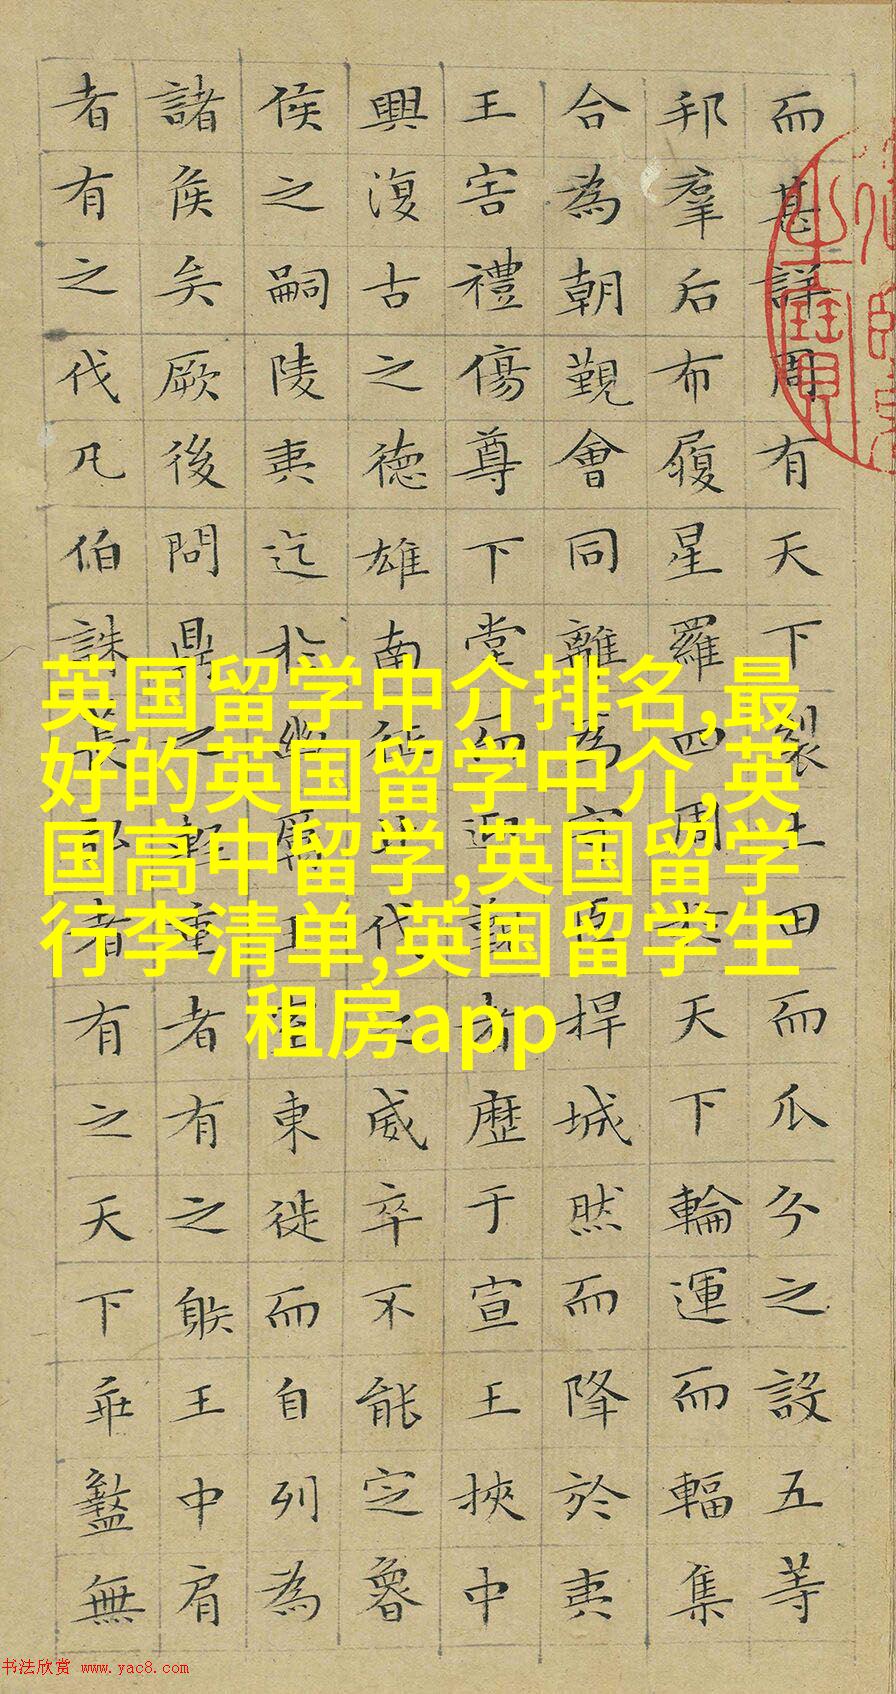 而甚詳周有天下裂土田而瓜分之設五等
邦羣后布履星羅四周於天下輪運而輻集
合為朝覲會同離為守臣捍城然而降於夷
王害禮傷尊下堂而迎覲者歷于宣王挾中
興復古之德雄南征北伐之威卒不能定魯
侯之嗣陵夷迄於幽厲王室東徙而自列為
諸侯矣厥後問鼎之輕重者有之射王中肩
者有之伐凡伯誅萇弘者有之天下乖盭無
英国留学中介排名,最
好的英国留学中介,英
国高中留学,英国留学
行李清单,英国留学生
租房app
书法欣赏 www.yac8.com